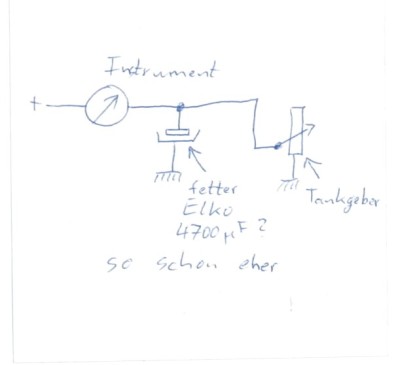 Instrument
+
fetter
Elko
4700µF?
Tankgeber
so schon eher